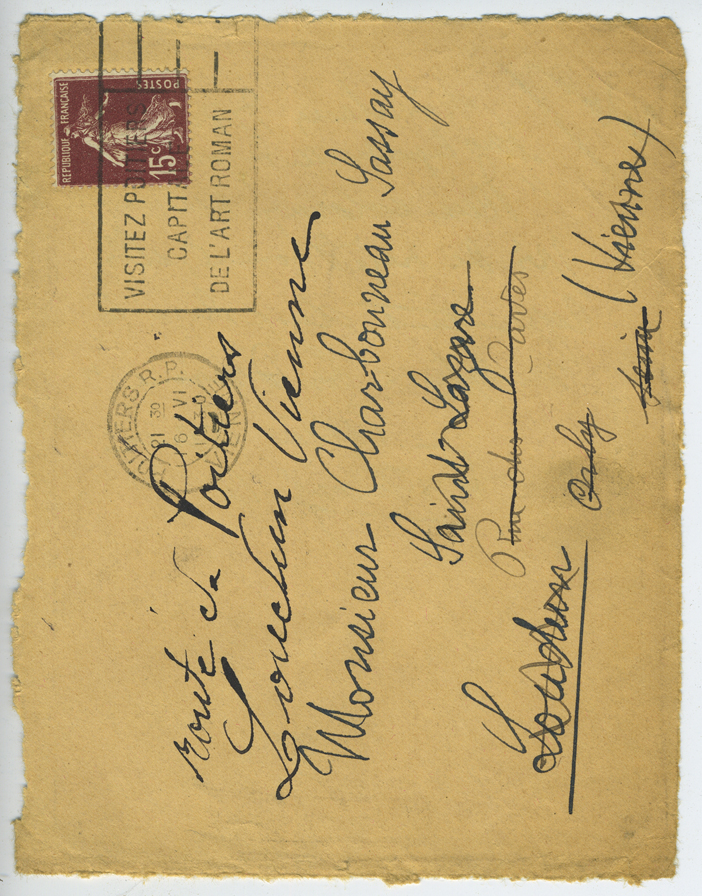 REPUBLIQUE FRANÇAISE
POSTES
15c
VISITEZ POITIERS
CAPITALE
DE L'ART ROMAN
POITIERS R.P.
21 30
6 VI
VIENNE
route de Poitiers
Loudun Vienne
Monsieur Charbonneau Lassay
Saint Lazare
Rue des Caves
Loudun Orly Seine (Vienne)